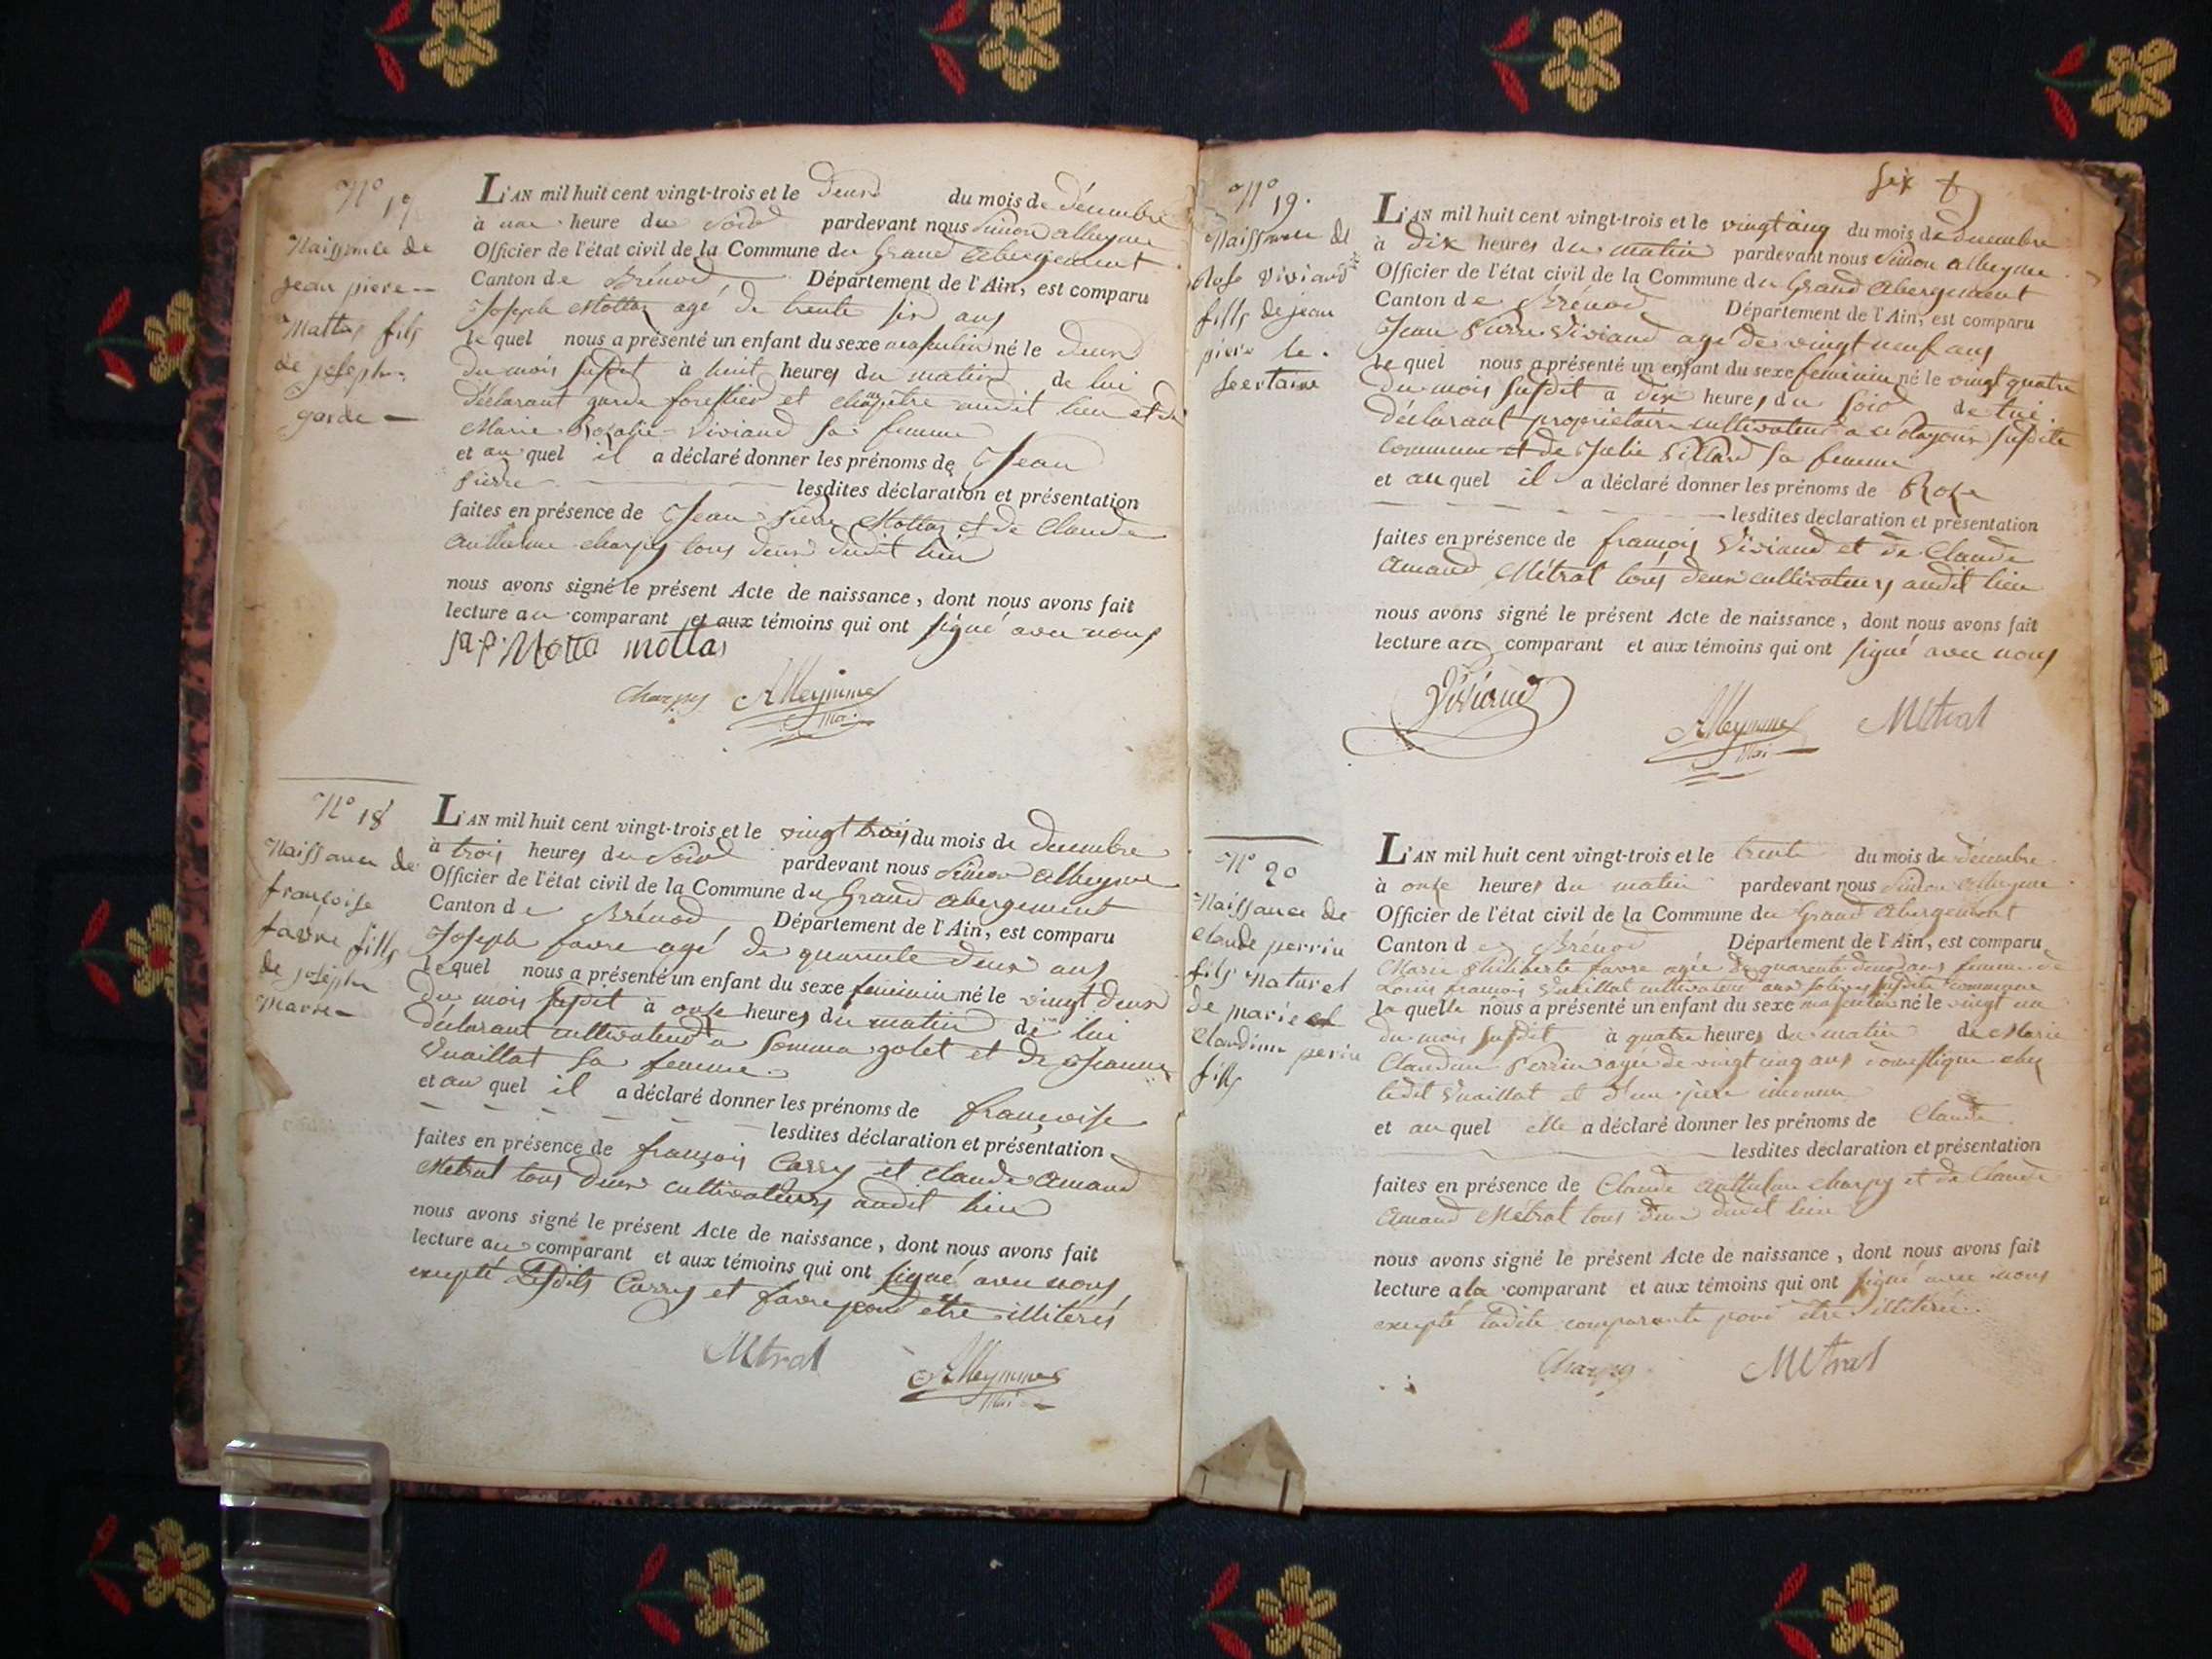 N° 17
Naissance de
jean piere
Mattas fils
de joseph
garde
L'AN mil huit cent vingt-trois et le deux du mois de décembre
à une heure du soir pardevant nous Simon alleyme
Officier de l'état civil de la Commune du Grand abergement
Canton de Brénod Département de l'Ain, est comparu
Joseph Mottas agé de trente six ans
le quel nous a présenté un enfant du sexe masculin né le deux
du mois susdit à huit heures du matin de lui
déclarant garde forestier et champêtre audit lieu et de
Marie Rozalie Viviand sa femme
et au quel il a déclaré donner les prénoms de Jean
Pierre lesdites déclaration et présentation
faites en présence de Jean Pierre Mottas et de Claude
Anthelme charpy tous deux dudit lieu
nous avons signé le présent Acte de naissance, dont nous avons fait
lecture au comparant et aux témoins qui ont signé avec nous
Motta mottas
Charpy Alleymme
N° 18
Naissance de
françoise
favre fille
de joseph
L'AN mil huit cent vingt-trois et le vingt trois du mois de decembre
à trois heures du soir pardevant nous Simon alleyme
Officier de l'état civil de la Commune du Grand abergement
Canton de Brénod Département de l'Ain, est comparu
Joseph favre agé de quarente deux ans
le quel nous a présenté un enfant du sexe feminin né le vingt deux
du mois susdit à onse heures du matin de lui
déclarant cultivateur a Somma golet et de Jeanne
Vuaillat sa femme
et au quel il a déclaré donner les prénoms de françoise
lesdites déclaration et présentation
faites en présence de françois Carry et Claude Amand
Metral tous deux cultivateurs audit lieu
nous avons signé le présent Acte de naissance, dont nous avons fait
lecture au comparant et aux témoins qui ont signé avec nous
excepté lesdits Carry et favre pour etre illitérés
Metral Alleymme
six
N° 19.
Naissance de
Rose viviand
fille de jean
piere le
L'AN mil huit cent vingt-trois et le vingt cinq du mois de decembre
à dix heures du matin pardevant nous Simon alleyme
Officier de l'état civil de la Commune du Grand abergement
Canton de Brénod Département de l'Ain, est comparu
Jean Pierre Viviand agé de vingt neuf ans
le quel nous a présenté un enfant du sexe feminin né le vingt quatre
du mois susdit à dix heures du soir de lui
déclarant propriétaire cultivateur a susdite
commune et de Julie Pillard sa femme
et au quel il a déclaré donner les prénoms de Roze
lesdites déclaration et présentation
faites en présence de françois Viviand et de Claude
Amand Métral tous deux cultivateurs audit lieu
nous avons signé le présent Acte de naissance, dont nous avons fait
lecture au comparant et aux témoins qui ont signé avec nous
Viviand Alleymme Metral
N° 20
Naissance de
Claude perrin
fils naturel
de marie
Claudine perin
fille
L'AN mil huit cent vingt-trois et le trente du mois de décembre
à onse heures du matin pardevant nous Simon alleyme
Officier de l'état civil de la Commune du Grand abergement
Canton de Brénod Département de l'Ain, est comparu
Marie Philiberte favre agée de quarente deux ans femme de
Louis françois Vuaillat cultivateur susdite commune
la quelle nous a présenté un enfant du sexe masculin né le vingt un
du mois susdit à quatre heures du matin de Marie
Claudine Perrin agée de vingt cinq ans domestique chez
ledit Vuaillat et d'un père inconnu
et au quel elle a déclaré donner les prénoms de Claude
lesdites déclaration et présentation
faites en présence de Claude Anthelme charpy et de Claude
Amand Métral tous deux dudit lieu
nous avons signé le présent Acte de naissance, dont nous avons fait
lecture a la comparant et aux témoins qui ont signé avec nous
excepté ladite comparante pour etre illitérée.
Charpy Metral